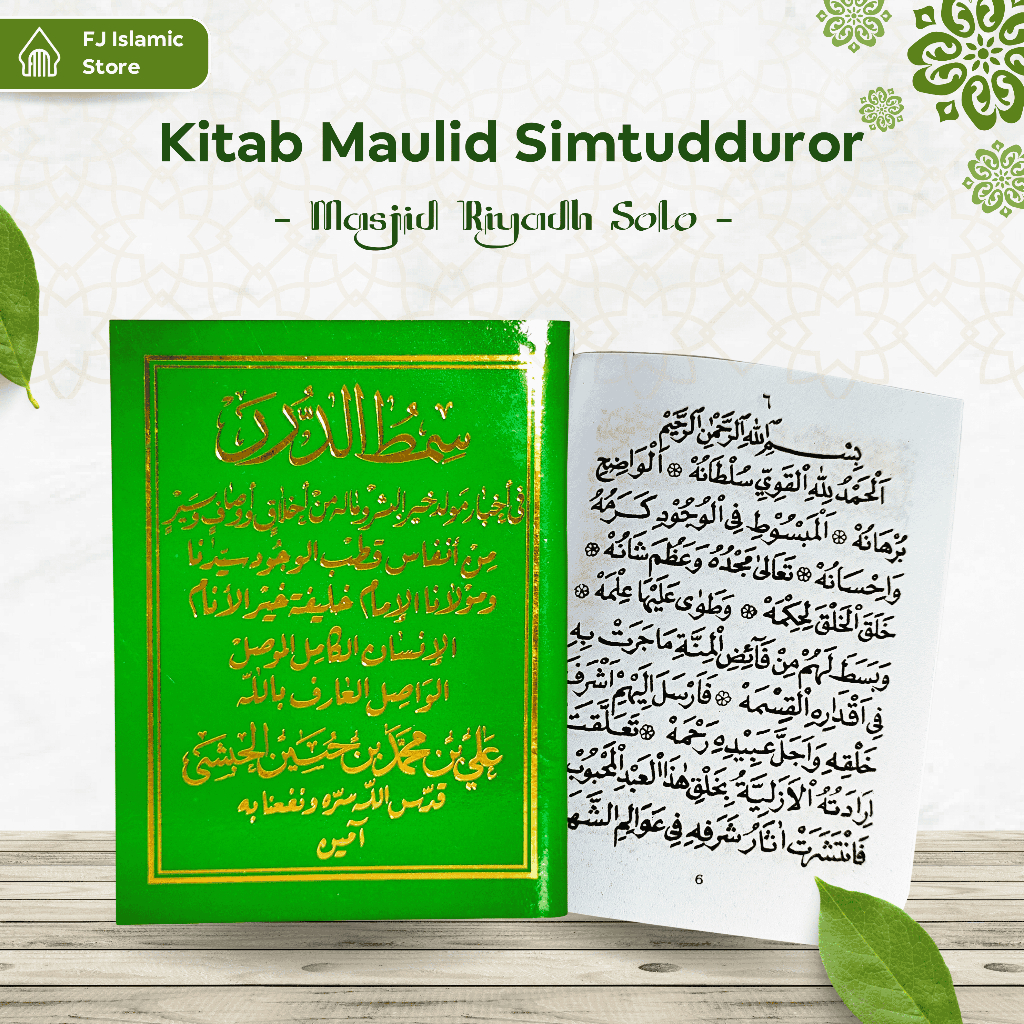 FJ Islamic
Store
Kitab Maulid Simtudduror
- Masjid Riyadh Solo -
سِمْطُ الدُّرَرْ
فى أخبار مَولد خير البشر وماله مِنْ أخلاقٍ وأوصافٍ وسِيَرْ
مِنْ أنفاس قطْبْ الوجُود سيّدنا
ومَوْلانا الإمام خليفة خيْر الأنام
الإنسان الكامِل الموصِلْ
الوَاصِل العَارف باللّه
عَلي بْن محمَّد بن حُسَيْن الحِبْشِى
قدّس اللّه سرّه ونفعنا به
آمين
٦
بِسْمِ اللهِ الرَّحْمٰنِ الرَّحِيْمِ
اَلْحَمْدُ لِلّٰهِ الْقَوِيِّ سُلْطَانُهْ ۞ اَلْوَاضِحِ
بُرْهَانُهْ ۞ اَلْمَبْسُوْطِ فِى الْوُجُوْدِ كَرَمُهُ
وَاِحْسَانُهْ ۞ تَعَالٰى مَجْدُهُ وَعَظُمَ شَانُهْ ۞
خَلَقَ الْخَلْقَ لِحِكْمَهْ ۞ وَطَوٰى عَلَيْهَا عِلْمَهْ ۞
وَبَسَطَ لَهُمْ مِنْ فَآئِضِ الْمِنَّةِ مَاجَرَتْ بِهِ
فِى اَقْدَارِهِ الْقِسْمَهْ ۞ فَاَرْسَلَ اِلَيْهِمْ اَشْرَفَ
خَلْقِهِ وَاَجَلَّ عَبِيْدِهِ رَحْمَهْ ۞ تَعَلَّقَتْ
اِرَادَتُهُ الْاَزَلِيَّةُ بِخَلْقِ هٰذَا الْعَبْدِ الْمَحْبُوْبْ
فَانْتَشَرَتْ اٰثَارُ شَرَفِهِ فِى عَوَالِمِ
6